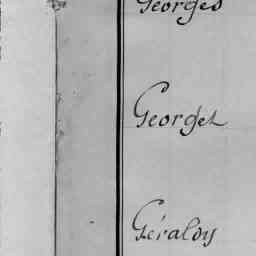 Georges
Georget
Géraldy